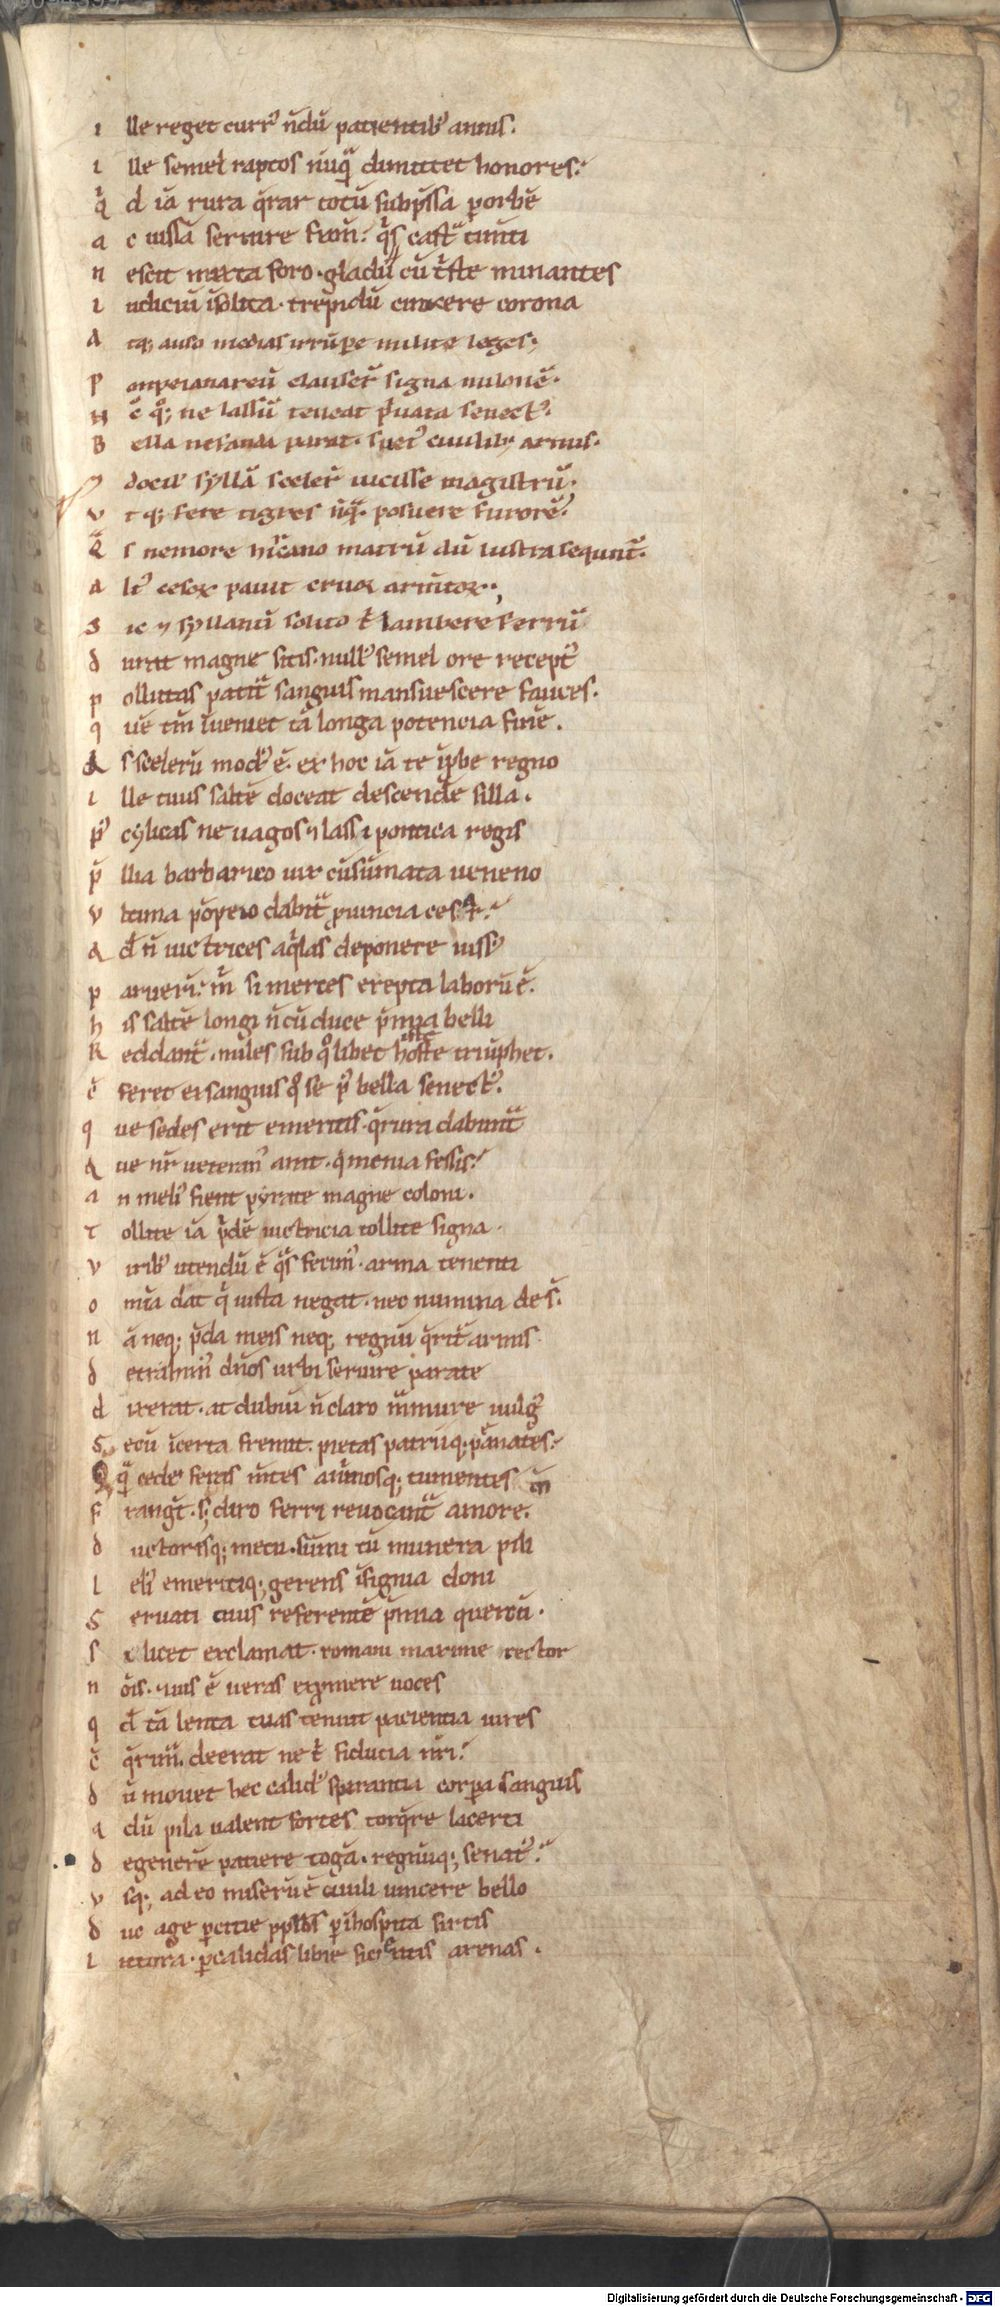 i lle reget curr᷒ n̄dū pacientib᷒ annis.
i lle semel raptos nūqᷓ dimittet honores.
Q̊ d iā rura q̄rar totū subp̄ssa ꝑ orbē
a c iussā seruire famē? q̄s castᷓ timēti
n escit mixta foro. gladii cū tͥste minantes
i udiciū īsolita. trepidū cinxere corona
A tq; auso medias irrūpe milite leges;
P ompeianareū clauser̄ signa milonē.
N c̄ qͦ; ne lassū teneat pͥuata senect᷒.
B ella nefanda parat. suet᷒ ciuilib; armis.
 docil᷒ syllā sceler̄ uicisse magistrū.
V t q; fere tigres nūqᷓ posuere furorē.
Qᷓ s nemore hircano matrū dū lustra sequnt᷑.
A lt᷒ cesoꝝ pauit cruoꝝ armtoꝝ;
S ic ⁊ syllanū solito tͥ lambere ferrū
d urat magne sitis. null᷒ semel ore recept᷒
p ollutas patitᷓ sanguis mansuescere fauces.
q uē tm̄ īueniet tā longa potencia finē.
Q s scelerū mod᷒ ē. ex hoc iā te īprobe regno
i lle tuus saltē doceat descendē silla.
p᷒ cylicas ne uagos ⁊ lassi pontica regis
p̄ lia barbarico uix cūsūmata ueneno
v ltima pōpeio dabitᷓ ꝓuincia cesar?
Q d̄ n̄ uictrices aqͥlas deponere iuss᷒
p aruerī? m̄ si merces erepta laborū ē.
h is saltē longi n̄ cū duce p̄mia belli
R eddantᷓ. miles sub qͦlibet iste hoste triūphet.
c̄ feret exsanguis qͦ se p᷒ bella senect᷒.
q ue sedes erit emeritis. q̄ rura dabuntᷓ
Q ue nr̄ ueteran᷒ arat. q̄ menia fessis?
a n meli᷒ fient pyrate magne coloni.
T ollite iā pͥdē uictricia tollite signa.
v irib᷒ utendū ē qᷓs fecim᷒. arma tenenti
o mīa dat qͥ iusta negat. nec numina deer̄.
N ā neq; p̄da meis neq; regnū q̄ritᷓ armis.
d etrahim᷒ dn̄os urbi seruire parate
d ixerat. at dubiū n̄ claro mᷓmure uulg᷒
S ecū īcerta fremit. pietas patriiq; penates.
Q qᷓ cede᷒ feras mites animosq; tumentes m̄
F rangt̄. s; diro ferri reuocantᷓ amore.
d uctorisq; metu. sūmi tū munera pili
l eli᷒ emeritiq; gerens īsignia doni
S eruati ciuis referentē p̄mia quercū.
s i licet exclamat. romani maxime rector
n ōis. ius ē ueras exp̄mere uoces
q d̄ tā lenta tuas tenuit pacientia uires
c̄ q̄rimᷓ. deerat ne tͥ fiducia nr̄i?
d ū mouet hec calid᷒ spirantia corpa sanguis
q dū pila ualent fortes torq̄re lacerti
d egenerē patiere togā. regnūq; senat᷒?
v sq; ad eo miserū ē ciuili uincere bello
d uc age ꝑ scitie ppl̄os ꝑ īhospita sirtis
l ittora. ꝑ calidas libie sicientis arenas.
Digitalisierung gefördert durch die Deutsche Forschungsgemeinschaft - DFG